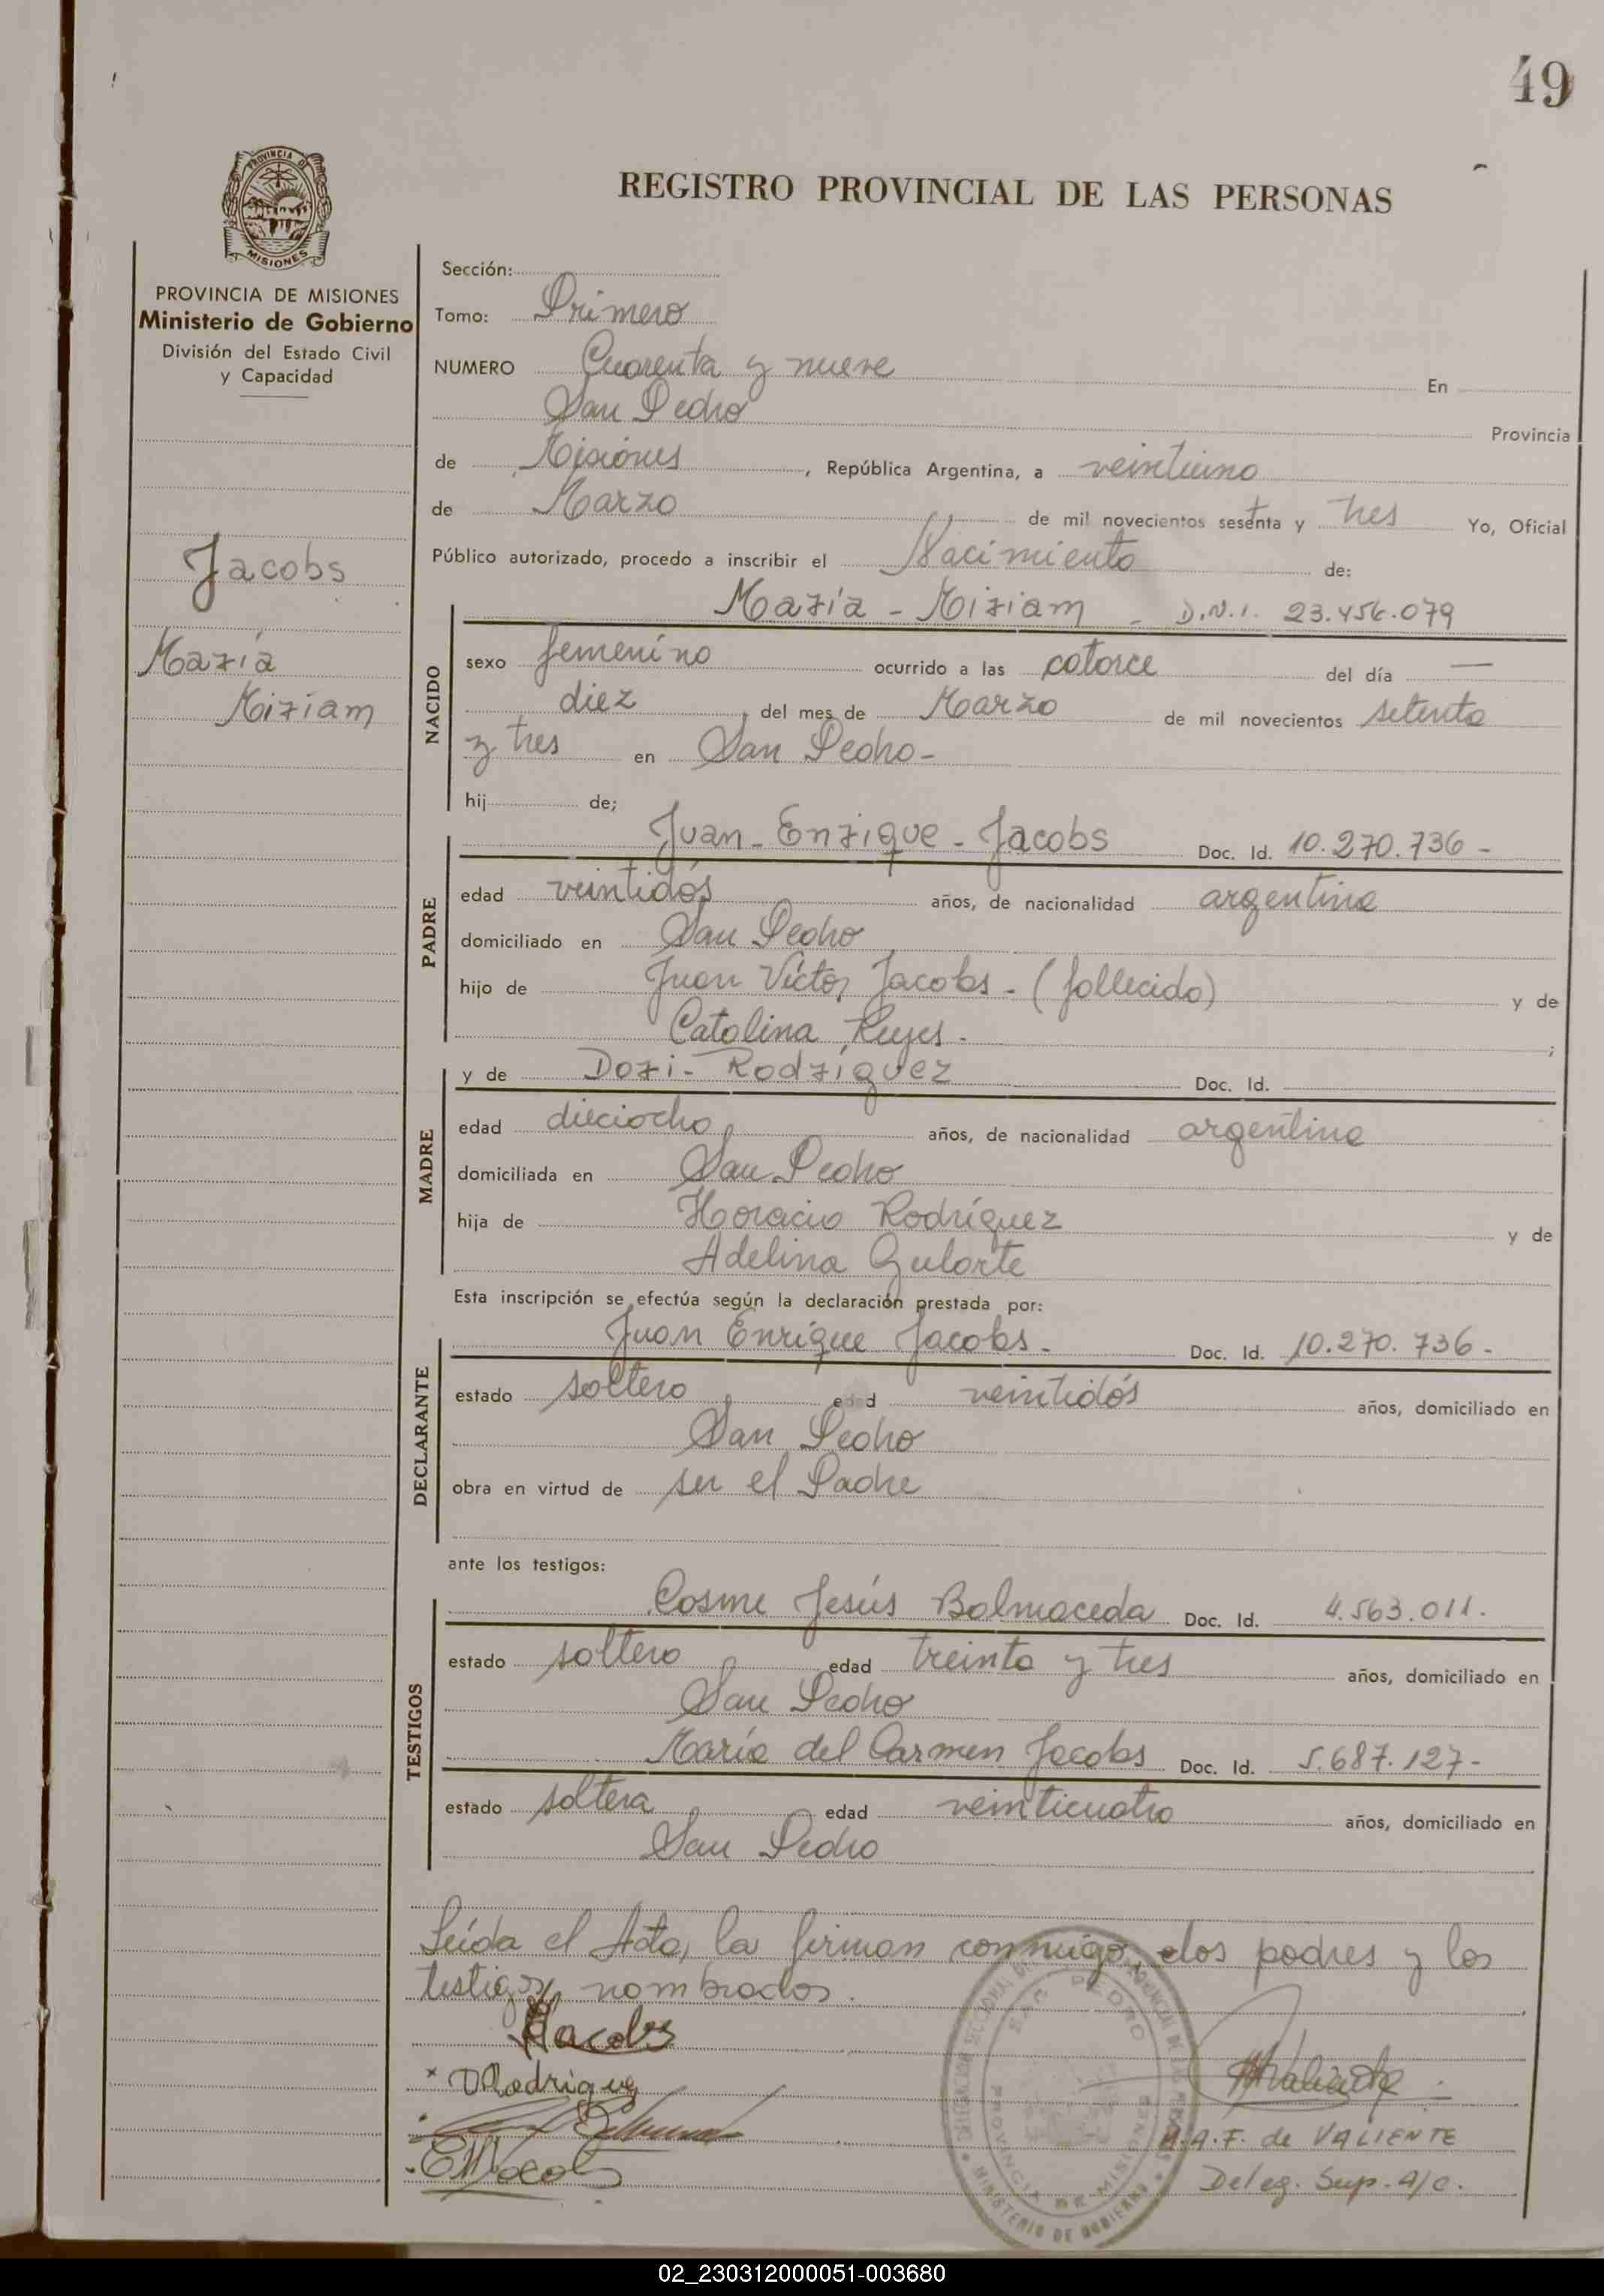 49
PROVINCIA DE
MISIONES
REGISTRO PROVINCIAL DE LAS PERSONAS
PROVINCIA DE MISIONES
Ministerio de Gobierno
División del Estado Civil
y Capacidad
Jacobs
María
Miriam
Sección:
Tomo: Primero
NUMERO Cuarenta y nueve En
San Pedro Provincia
de Misiones, República Argentina, a veintiuno
de Marzo de mil novecientos sesenta y tres Yo, Oficial
Público autorizado, procedo a inscribir el Nacimiento de:
María - Miriam - D.N.I. 23.456.079
NACIDO
sexo femenino ocurrido a las catorce del día —
diez, del mes de Marzo de mil novecientos setenta
y tres en San Pedro-
hij de;
Juan - Enrique - Jacobs Doc. Id. 10.270.736 -
PADRE
edad veintidós años, de nacionalidad argentina
domiciliado en San Pedro
hijo de Juan Víctor Jacobs - (fallecido) y de
Catalina Reyes - ;
y de Dori - Rodríguez Doc. Id.
MADRE
edad dieciocho años, de nacionalidad argentina
domiciliada en San Pedro
hija de Horacio Rodríguez y de
Adelina Gularte
Esta inscripción se efectúa según la declaración prestada por:
Juan Enrique Jacobs - Doc. Id. 10.270.736 -
DECLARANTE
estado soltero edad veintidós años, domiciliado en
San Pedro
obra en virtud de ser el Padre
ante los testigos:
Cosme Jesús Balmaceda Doc. Id. 4.563.011.
TESTIGOS
estado soltero edad treinta y tres años, domiciliado en
San Pedro
María del Carmen Jacobs Doc. Id. 5.687.127-
estado soltera edad veinticuatro años, domiciliado en
San Pedro
Leída el Acta, la firman conmigo, los padres y los
testigos nombrados.
Jacobs
x DRodriguez
MJacobs
SAN PEDRO
PROVINCIA DE MISIONES
MINISTERIO DE GOBIERNO
A.F. de VALIENTE
Deleg. Sup. a/c.
02_230312000051-003680